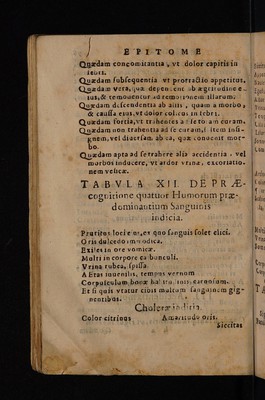 EPITOME
Quædam concomitantia, vt dolor capitis in
febris.
Quædam subsequentia vt prostratio appetitus.
Quædam verò, quæ dependent ab ægritudine
ius, & remouentur ad remotionem illarum.
Quædam descendentia ab aliis, quam a morbo,
& causa eius, vt dolor colicus in febri.
Quædam fortia, vt trahentia ad se totam curam.
Quædam non trahentia ad se curam, item insi-
gnem, vel diuersam ab ea, quæ conuenit mor-
bo.
Quædam apta ad se trahere alia accidentia, vel
morbos inducere, vt ardor vrinæ, excoriatio-
nem vesicæ.
TABVLA XII. DE PRÆ-
cognitione quatuor Humorum præ-
dominantium Sanguinis
indicia.
Pruritus loci eius, ex quo sanguis solet elici.
Oris dulcedo immodica.
Exites in ore vomicæ.
Multi in corpore carbunculi.
Vrina rubea, spissa.
Aetas iuuenilis, tempus vernum
Corpusculum bonæ habitudinis carnosum.
Et si quis vtatur cibis multum sanguinem gig-
nentibus.
Choleræ indicia.
Color citrinus Amaritudo oris.
Siccitas